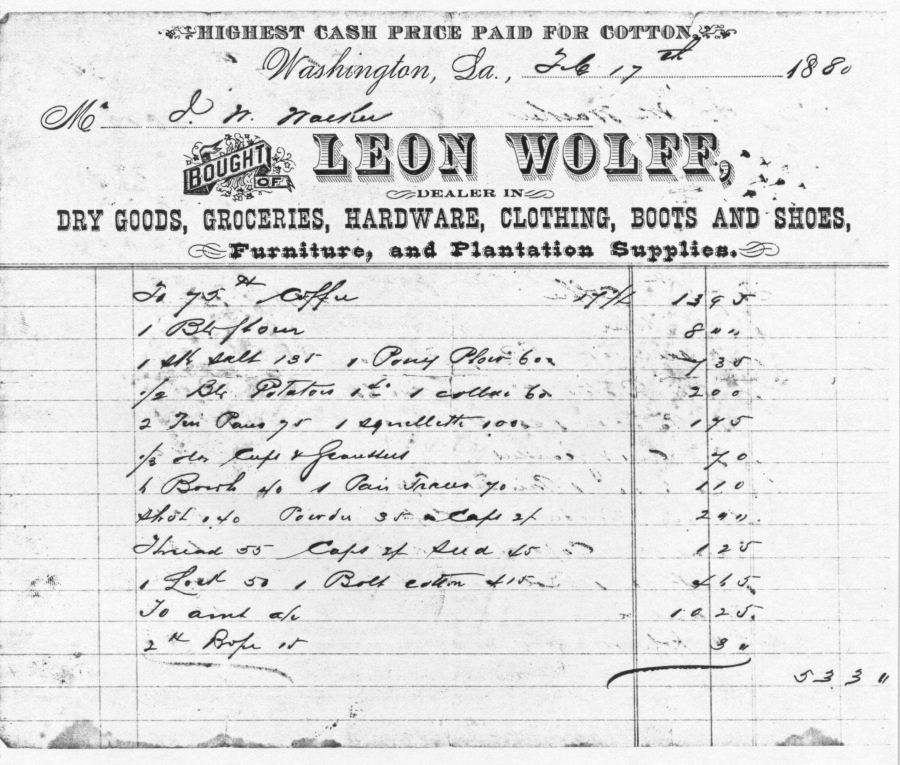 HIGHEST CASH PRICE PAID FOR COTTON.
Washington, La., Feb 17th 1880
Mr J. W. Wacker
BOUGHT OF LEON WOLFF,
DEALER IN
DRY GOODS, GROCERIES, HARDWARE, CLOTHING, BOOTS AND SHOES,
Furniture, and Plantation Supplies.
To 75 # Coffee 13 95
1 Bbl flour 8 " "
1 sk salt 135 1 Pony Plow 600 7 35
1/2 Bbl Potatoes 1 40 1 collar 60 2 00
2 Tin Pans 75 1 100 1 75
1/3 doz Cups & 70
Bowls 40 1 Pair Traces 70 1 10
Shot 40 Powder 35 Caps 2 " "
Thread 55 Caps 25 Seed 45 1 25
1 Lock 50 1 Bolt cotton 415 4 65
To amt a/c 10 25
2 # Rope 15 3 "
53 3 "